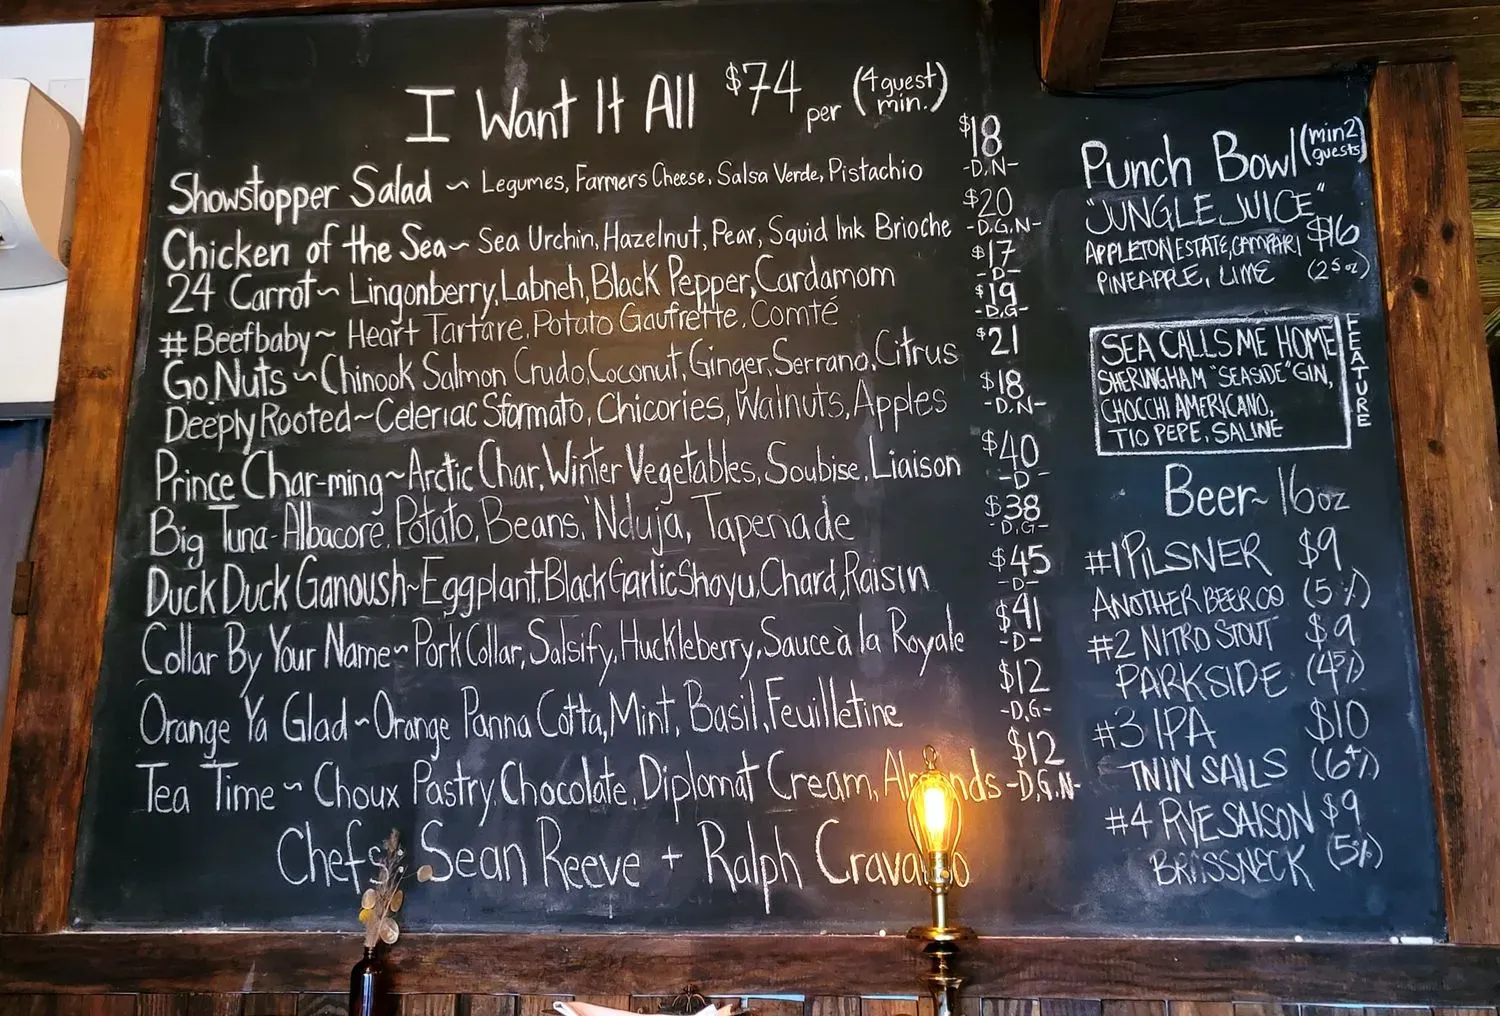 I Want It All $74 per (4 guest min.)
Showstopper Salad ~ Legumes, Farmers Cheese, Salsa Verde, Pistachio $18 -D,N-
Chicken of the Sea ~ Sea Urchin, Hazelnut, Pear, Squid Ink Brioche $20 -D,G,N-
24 Carrot ~ Lingonberry, Labneh, Black Pepper, Cardamom $17 -D-
#Beefbaby ~ Heart Tartare, Potato Gaufrette, Comté $19 -D,G-
Go Nuts ~ Chinook Salmon Crudo, Coconut, Ginger, Serrano, Citrus $21
Deeply Rooted ~ Celeriac Sformato, Chicories, Walnuts, Apples $18 -D,N-
Prince Char-ming ~ Arctic Char, Winter Vegetables, Soubise, Liaison $40 -D-
Big Tuna - Albacore, Potato, Beans, 'Nduja, Tapenade $38 -D,G-
Duck Duck Ganoush ~ Eggplant, Black Garlic Shoyu, Chard, Raisin $45 -D-
Collar By Your Name ~ Pork Collar, Salsify, Huckleberry, Sauce à la Royale $41 -D-
Orange Ya Glad ~ Orange Panna Cotta, Mint, Basil, Feuilletine $12 -D,G-
Tea Time ~ Choux Pastry, Chocolate, Diplomat Cream, Almonds $12 -D,G,N-
Chefs Sean Reeve + Ralph
Punch Bowl (min 2 guests)
"JUNGLE JUICE" $16
APPLETON ESTATE, CAMPARI
PINEAPPLE, LIME (2.5 oz)
SEA CALLS ME HOME
SHERINGHAM "SEASIDE" GIN,
CHOCCHI AMERICANO,
TIO PEPE, SALINE
FEATURE
Beer ~ 16oz
#1 PILSNER $9
ANOTHER BEER CO (5%)
#2 NITRO STOUT $9
PARKSIDE (4.5%)
#3 IPA $10
TWIN SAILS (6.4%)
#4 RYE SAISON $9
BRASSNECK (5%)